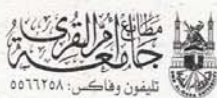 مطابع جامعة أم القرى
تليفون وفاكس: ٥٥٦٦٢٥٨